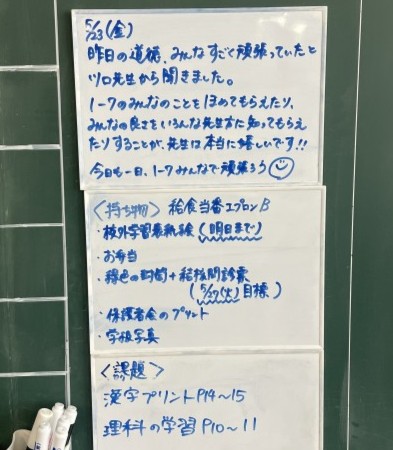 5/23(金)
昨日の道徳、みんなすごく頑張っていたと
ソロ先生から聞きました。
1-7のみんなのことをほめてもらえたり、
みんなの良さをいろんな先生方に知ってもらえ
たりすることが、先生は本当に嬉しいです!!
今日も一日、1-7みんなで頑張ろう
〈持ち物〉 給食当番エプロンB
・校外学習表紙絵(明日まで)
・お弁当
・緑色の封筒+結核問診票
(5/27(火)目標)
・保護者会のプリント
・学校写真
〈課題〉
漢字プリントP14〜15
理科の学習P10〜11